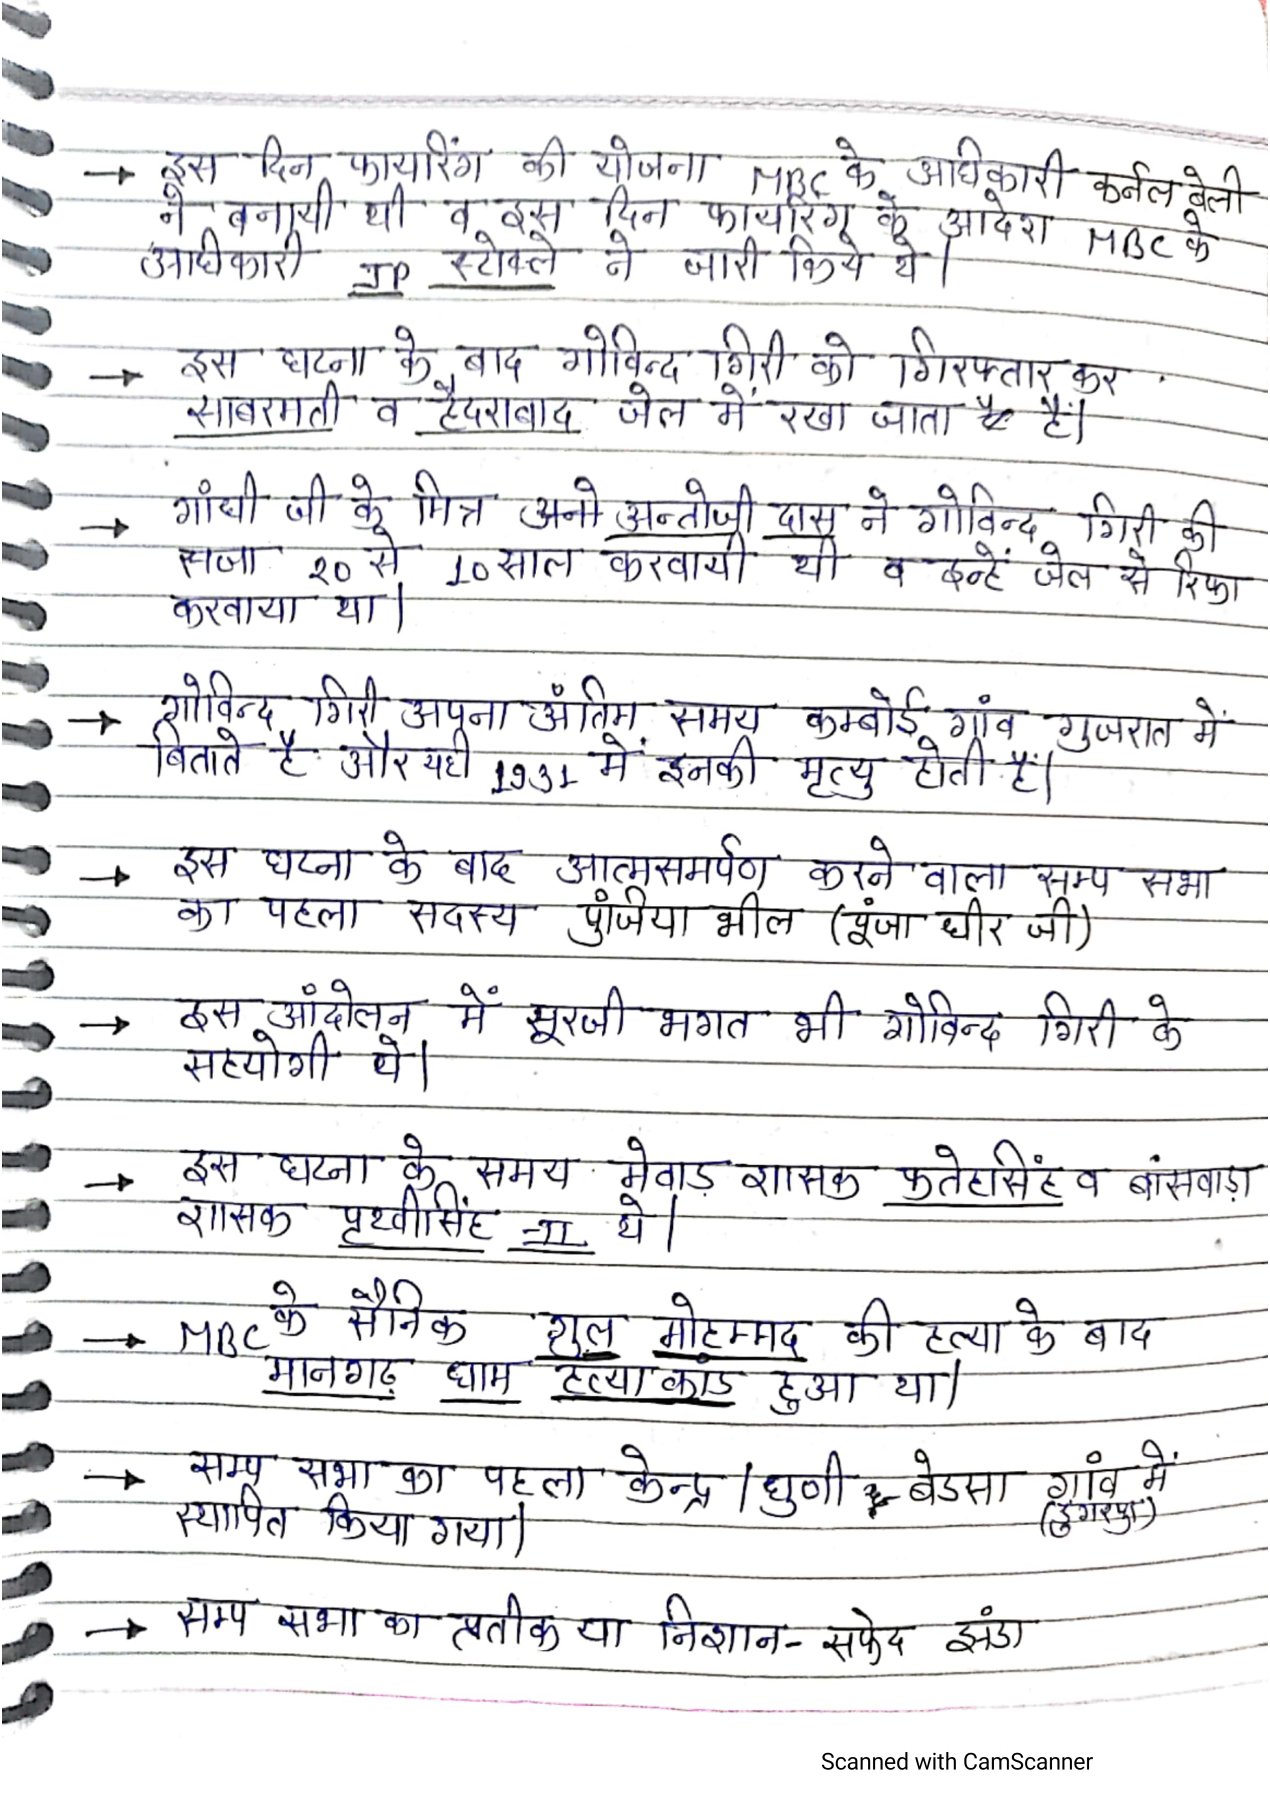 → इस दिन फायरिंग की योजना MBC के अधिकारी कर्नल बेली
ने बनायी थी व इस दिन फायरिंग के आदेश MBC के
अधिकारी JP स्टोक्ले ने जारी किये थे।
→ इस घटना के बाद गोविन्द गिरी को गिरफ्तार कर
साबरमती व हैदराबाद जेल में रखा जाता है।
→ गांधी जी के मित्र अनो अन्तोजी दास ने गोविन्द गिरी की
सजा 20 से 10 साल करवायी थी व इन्हें जेल से रिफा
करवाया था।
→ गोविन्द गिरी अपना अंतिम समय कम्बोई गांव गुजरात में
बिताते है और यही 1931 में इनकी मृत्यु होती है।
→ इस घटना के बाद आत्मसमर्पण करने वाला सम्प सभा
का पहला सदस्य पुंजिया भील (पूंजा धीर जी)
→ इस आंदोलन में सूरजी भगत भी गोविन्द गिरी के
सहयोगी थे।
→ इस घटना के समय मेवाड़ शासक फतेहसिंह व बांसवाड़ा
शासक पृथ्वीसिंह II थे।
→ MBC के सैनिक गुल मोहम्मद की हत्या के बाद
मानगढ़ धाम हत्याकांड हुआ था।
→ सम्प सभा का पहला केन्द्र / धुणी बेडसा गांव में
(डुंगरपुर)
स्थापित किया गया।
→ सम्प सभा का प्रतीक या निशान - सफेद झंडा
Scanned with CamScanner